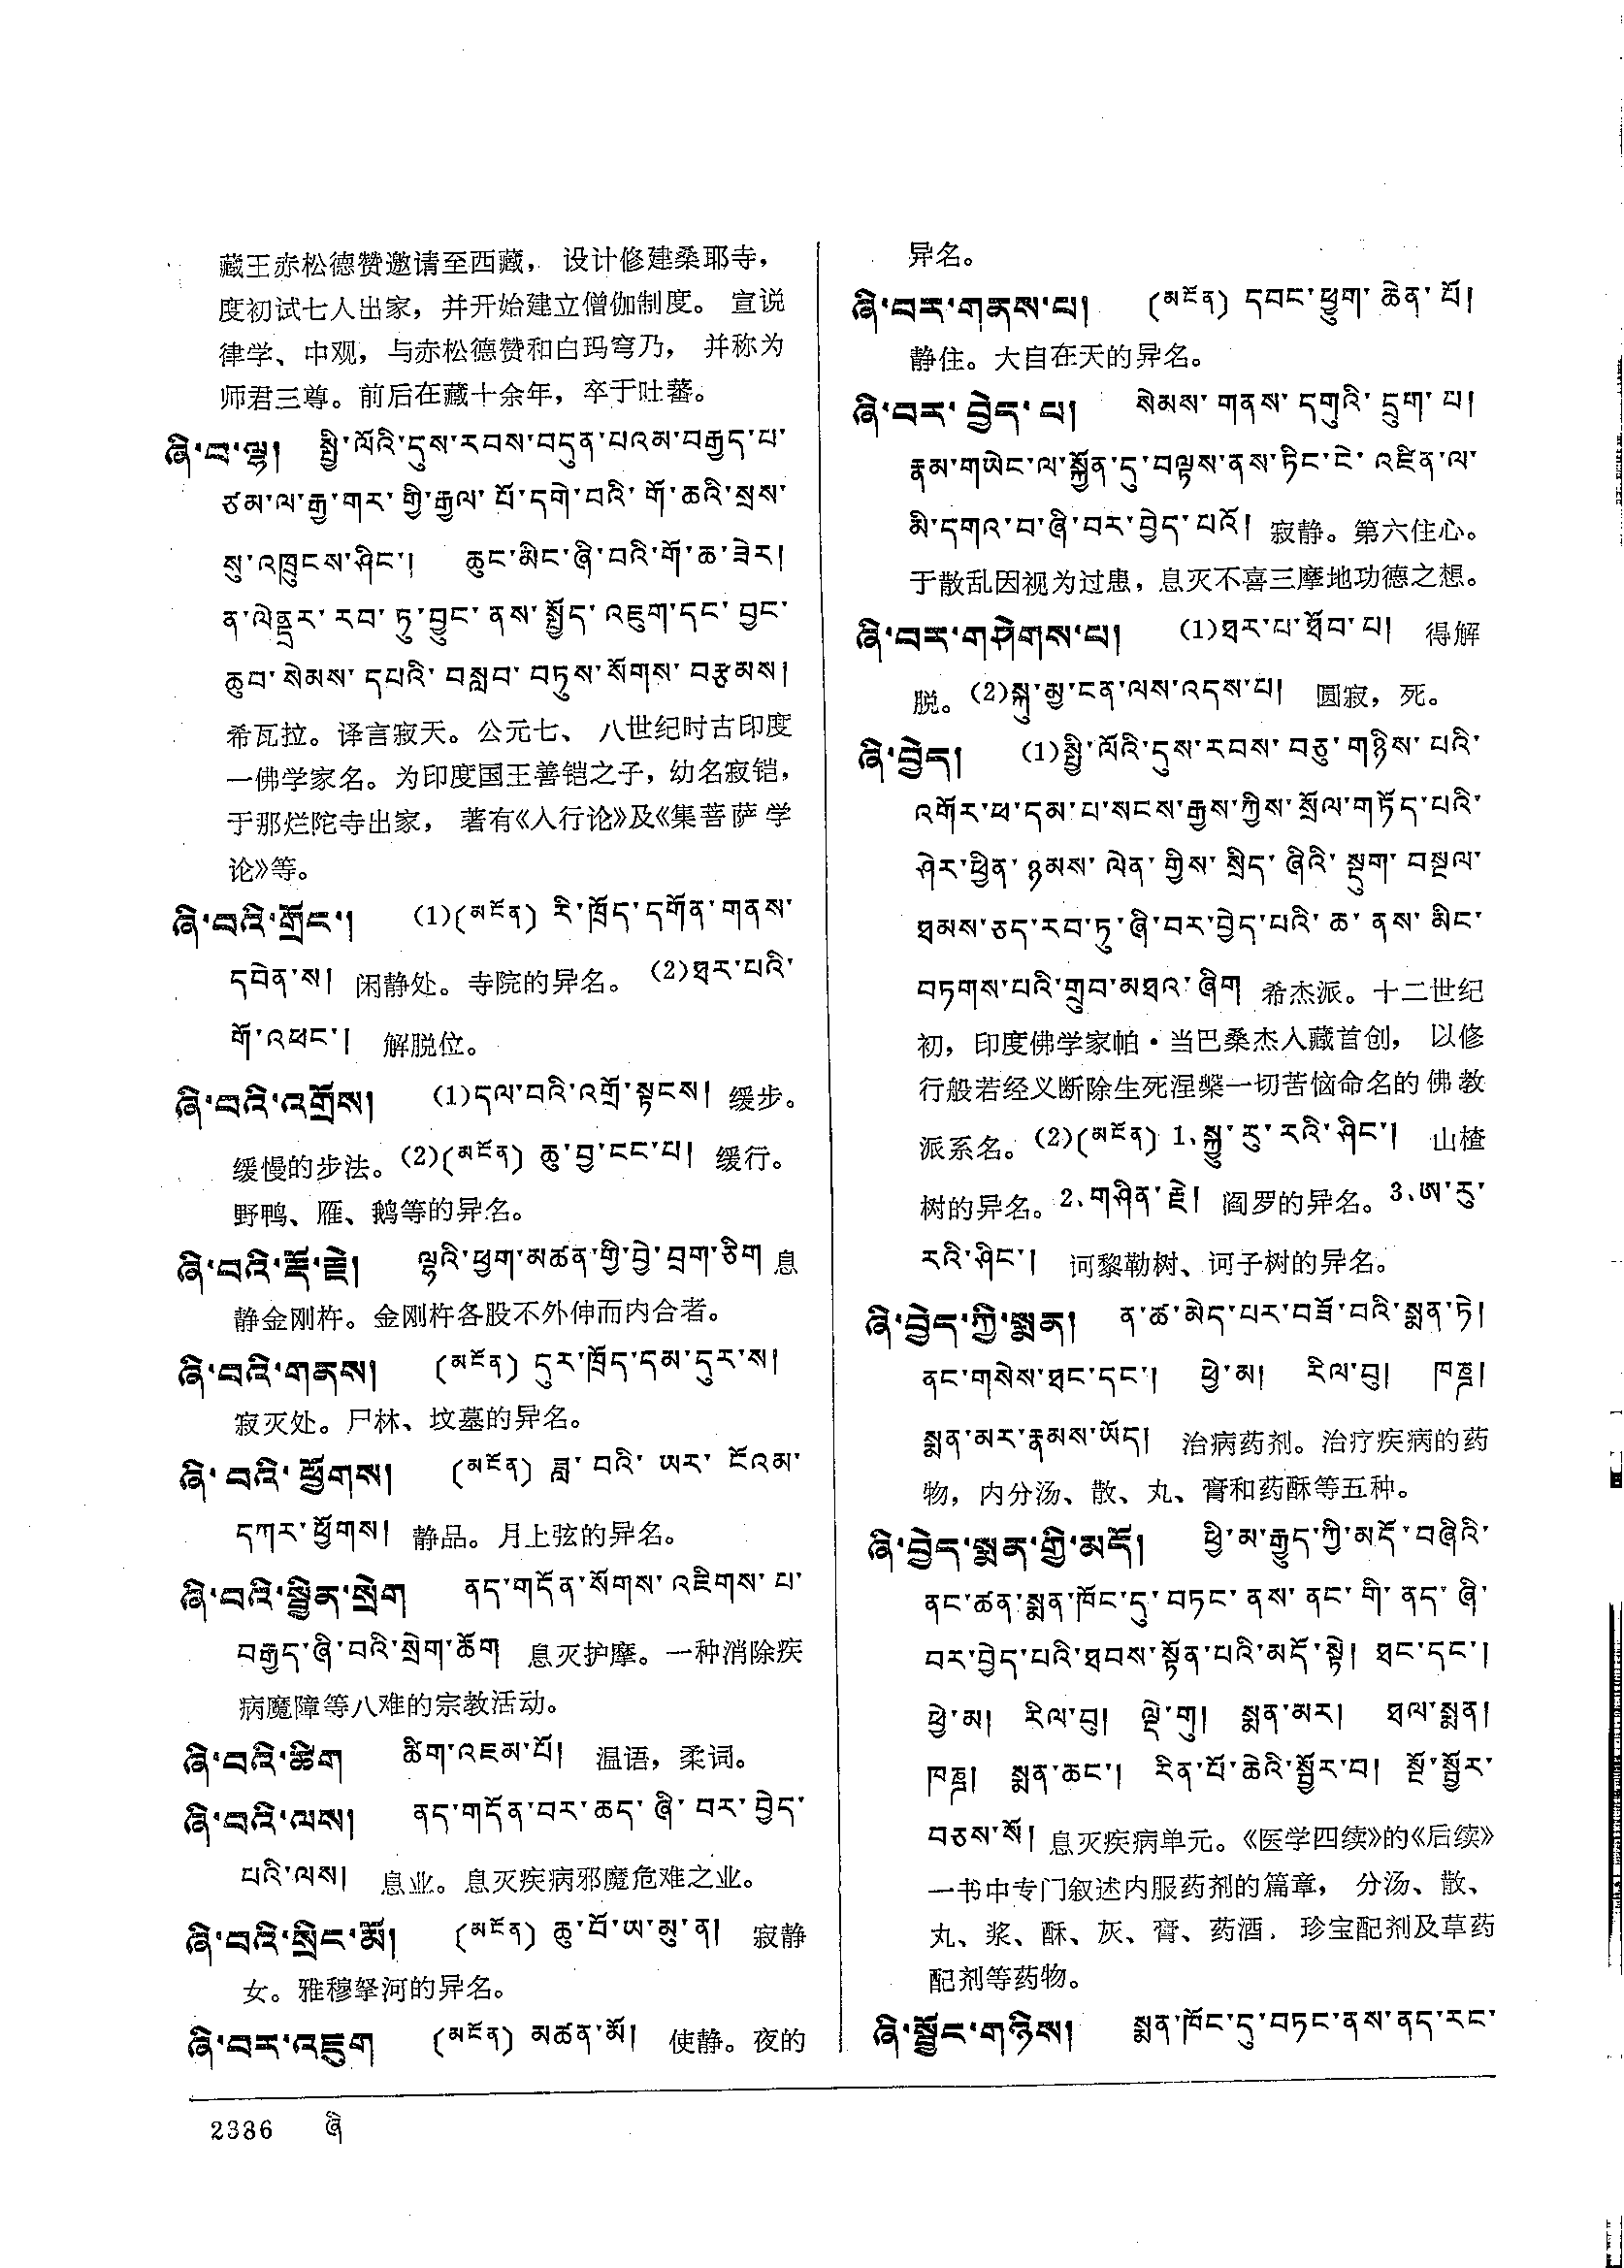 藏王赤松德赞邀请至西藏，设计修建桑耶寺，
度初试七人出家，并开始建立僧伽制度。宣说
律学、中观，与赤松德赞和白玛穹乃，并称为
师君三尊。前后在藏十余年，卒于吐蕃。
ཞི་བ་ལྷ། སྤྱི་ལོའི་དུས་རབས་བདུན་པའམ་བརྒྱད་པ་
ཙམ་ལ་རྒྱ་གར་གྱི་རྒྱལ་པོ་དགེ་བའི་གོ་ཆའི་སྲས་
སུ་འཁྲུངས་ཤིང་། ཆུང་མིང་ཞི་བའི་གོ་ཆ་ཟེར།
ན་ལེནྡྲར་རབ་ཏུ་བྱུང་ནས་སྤྱོད་འཇུག་དང་བྱང་
ཆུབ་སེམས་དཔའི་བསླབ་བཏུས་སོགས་བརྩམས།
希瓦拉。译言寂天。公元七、八世纪时古印度
一佛学家名。为印度国王善铠之子，幼名寂铠，
于那烂陀寺出家，著有《入行论》及《集菩萨学
论》等。
ཞི་བའི་གྲོང་། (1)(མངོན) རི་ཁྲོད་དགོན་གནས་
དབེན་ས། 闲静处。寺院的异名。(2)ཐར་པའི་
གོ་འཕང་། 解脱位。
ཞི་བའི་འགྲོས། (1)དལ་བའི་འགྲོ་སྟངས། 缓步。
缓慢的步法。(2)(མངོན) ཆུ་བྱ་ངང་པ། 缓行。
野鸭、雁、鹅等的异名。
ཞི་བའི་རྡོ་རྗེ། ལྷའི་ཕྱག་མཚན་གྱི་བྱེ་བྲག་ཅིག 息
静金刚杵。金刚杵各股不外伸而内合者。
ཞི་བའི་གནས། (མངོན) དུར་ཁྲོད་དམ་དུར་ས།
寂灭处。尸林、坟墓的异名。
ཞི་བའི་ཕྱོགས། (མངོན) ཟླ་བའི་ཡར་ངོའམ་
དཀར་ཕྱོགས། 静品。月上弦的异名。
ཞི་བའི་སྦྱིན་སྲེག ནད་གདོན་སོགས་འཇིགས་པ་
བརྒྱད་ཞི་བའི་སྲེག་ཆོག 息灭护摩。一种消除疾
病魔障等八难的宗教活动。
ཞི་བའི་ཚིག ཚིག་འཇམ་པོ། 温语，柔词。
ཞི་བའི་ལས། ནད་གདོན་བར་ཆད་ཞི་བར་བྱེད་
པའི་ལས། 息业。息灭疾病邪魔危难之业。
ཞི་བའི་སྲིང་མོ། (མངོན) ཆུ་བོ་ཡ་མུ་ན། 寂静
女。雅穆拏河的异名。
ཞི་བར་འཇུག (མངོན) མཚན་མོ། 使静。夜的
异名。
ཞི་བར་གནས་པ། (མངོན) དབང་ཕྱུག་ཆེན་པོ།
静住。大自在天的异名。
ཞི་བར་བྱེད་པ། སེམས་གནས་དགུའི་དྲུག་པ།
རྣམ་གཡེང་ལ་སྐྱོན་དུ་བལྟས་ནས་ཏིང་ངེ་འཛིན་ལ་
མི་དགའ་བ་ཞི་བར་བྱེད་པའོ། 寂静。第六住心。
于散乱因视为过患，息灭不喜三摩地功德之想。
ཞི་བར་གཤེགས་པ། (1)ཐར་པ་ཐོབ་པ། 得解
脱。(2)སྐུ་མྱ་ངན་ལས་འདས་པ། 圆寂，死。
ཞི་བྱེད། (1)སྤྱི་ལོའི་དུས་རབས་བཅུ་གཉིས་པའི་
འགོར་ཕ་དམ་པ་སངས་རྒྱས་ཀྱིས་སྲོལ་གཏོད་པའི་
ཤེར་ཕྱིན་ཉམས་ལེན་གྱིས་སྲིད་ཞིའི་སྡུག་བསྔལ་
ཐམས་ཅད་རབ་ཏུ་ཞི་བར་བྱེད་པའི་ཆ་ནས་མིང་
བཏགས་པའི་གྲུབ་མཐའ་ཞིག 希杰派。十二世纪
初，印度佛学家帕·当巴桑杰入藏首创，以修
行般若经义断除生死涅槃一切苦恼命名的佛教
派系名。(2)(མངོན) 1、སྐྱུ་རུ་རའི་ཤིང་། 山楂
树的异名。2、གཤིན་རྗེ། 阎罗的异名。3、ཨ་རུ་
རའི་ཤིང་། 诃黎勒树、诃子树的异名。
ཞི་བྱེད་ཀྱི་སྨན། ན་ཚ་མེད་པར་བཟོ་བའི་སྨན་ཏེ།
ནང་གསེས་ཐང་དང་། ཕྱེ་མ། རིལ་བུ། ཁཎྜ།
སྨན་མར་རྣམས་ཡོད། 治病药剂。治疗疾病的药
物，内分汤、散、丸、膏和药酥等五种。
ཞི་བྱེད་སྨན་གྱི་མདོ། ཕྱི་མ་རྒྱུད་ཀྱི་མདོ་བཞིའི་
ནང་ཚན་སྨན་ཁོང་དུ་བཏང་ནས་ནང་གི་ནད་ཞི་
བར་བྱེད་པའི་ཐབས་སྟོན་པའི་མདོ་སྟེ། ཐང་དང་།
ཕྱེ་མ། རིལ་བུ། ལྡེ་གུ། སྨན་མར། ཐལ་སྨན།
ཁཎྜ། སྨན་ཆང་། རིན་པོ་ཆེའི་སྦྱོར་བ། སྔོ་སྦྱོར་
བཅས་སོ། 息灭疾病单元。《医学四续》的《后续》
一书中专门叙述内服药剂的篇章，分汤、散、
丸、浆、酥、灰、膏、药酒，珍宝配剂及草药
配剂等药物。
ཞི་སྦྱོང་གཉིས། སྨན་ཁོང་དུ་བཏང་ནས་ནད་རང་
2386 ཞི